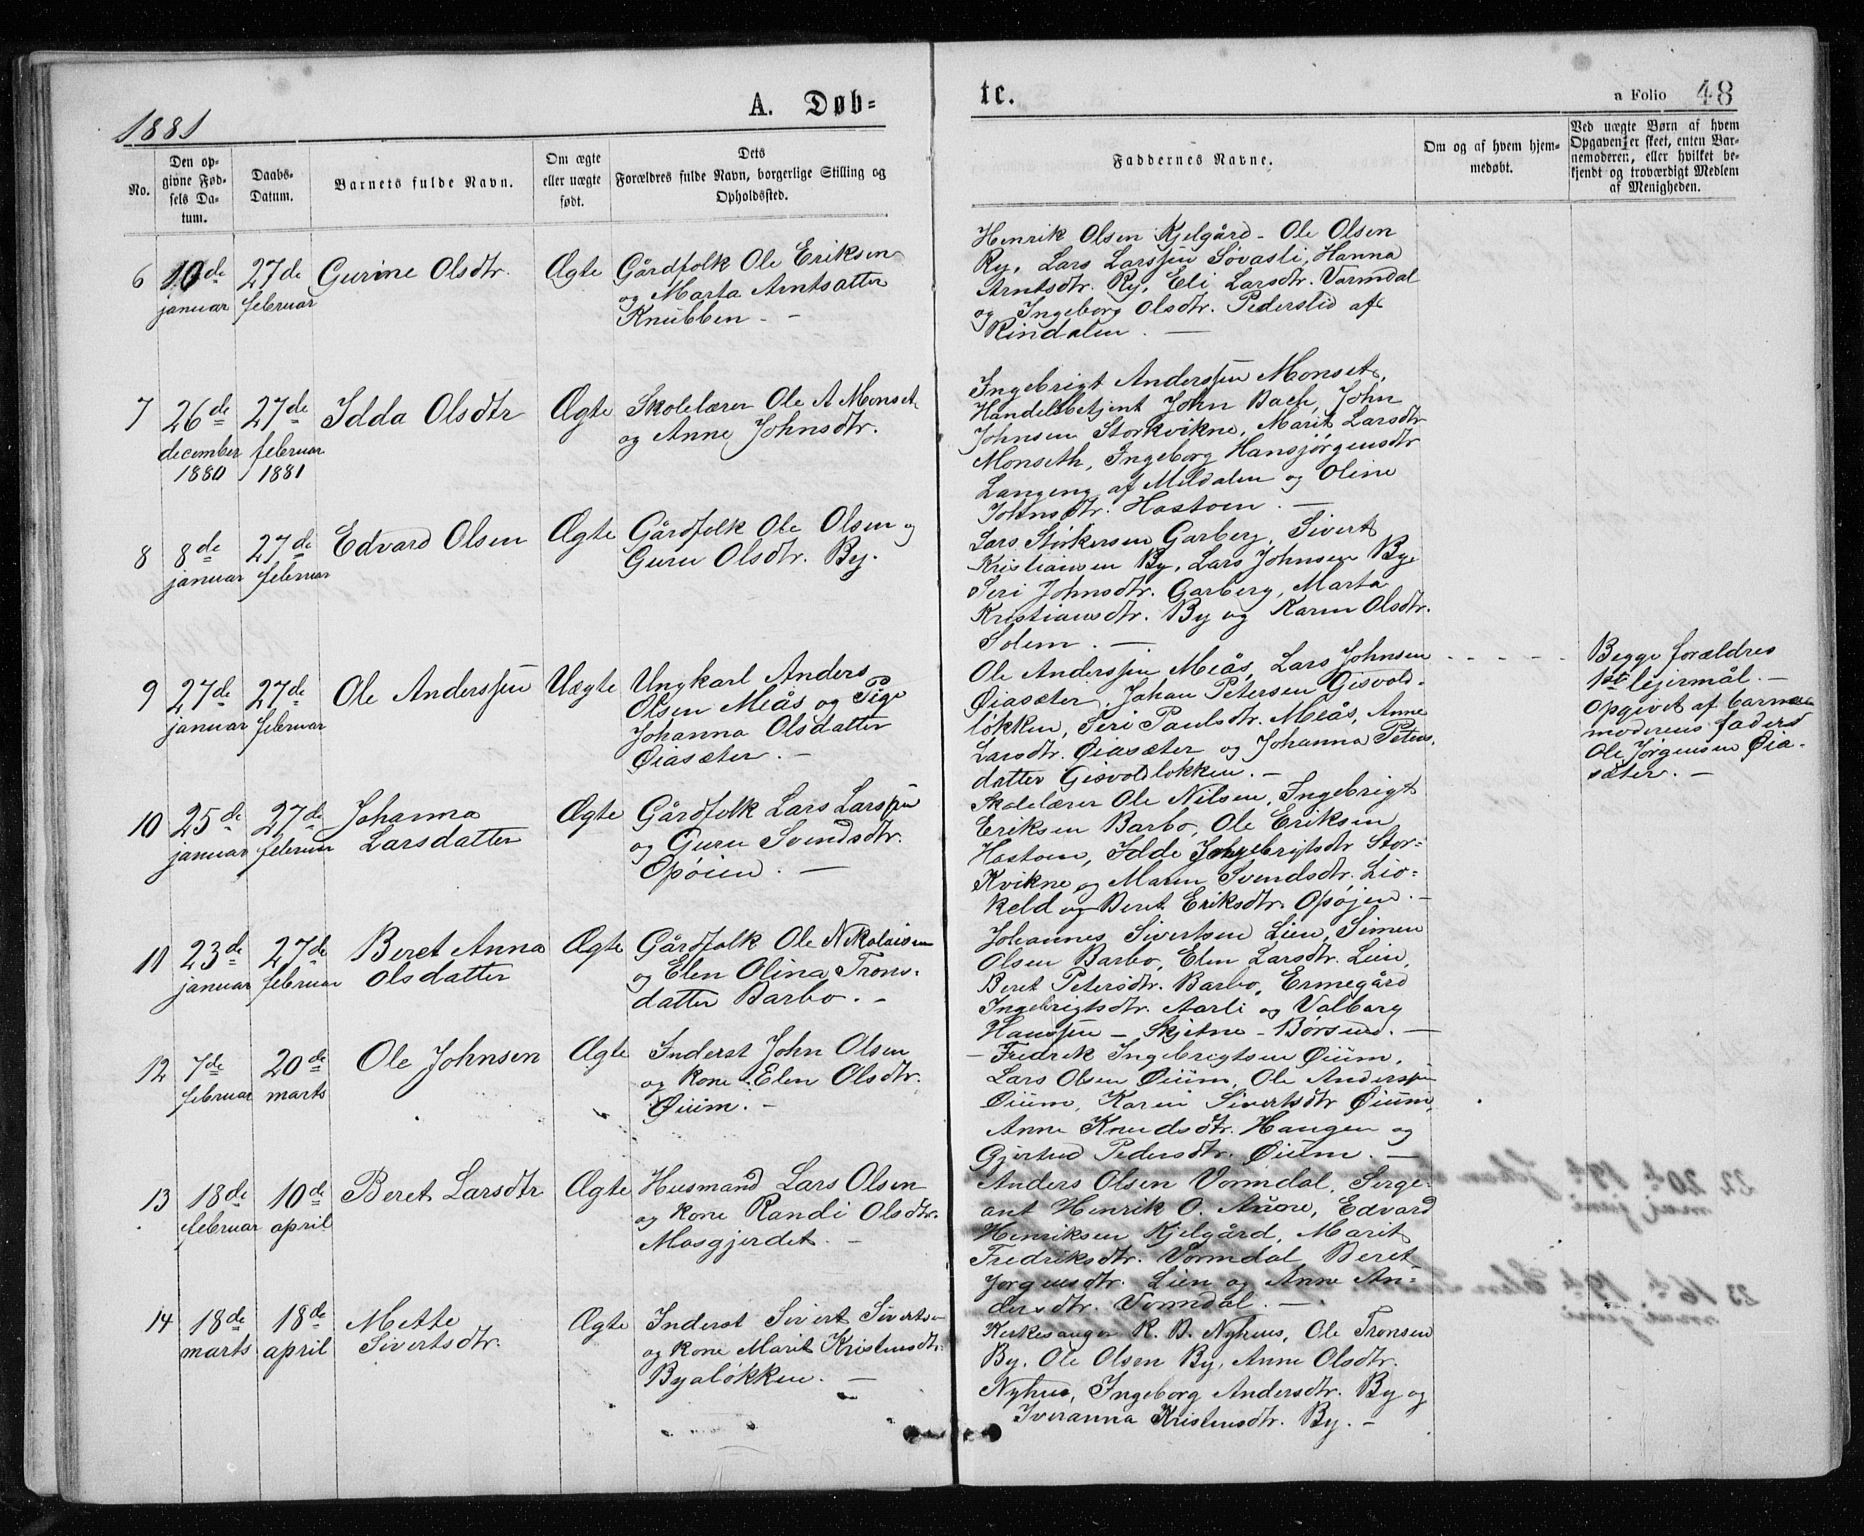 1881
A. Døb=
te.
a Folio 48
No.
Den op-
givne Fød-
sels Da-
tum.
Daabs-
Datum.
Barnets fulde Navn.
Om ægte
eller uægte
født.
Dets
Forældres fulde Navn, borgerlige Stilling og
Opholdssted.
Faddernes Navne.
Om og af hvem hjem-
medøbt.
Ved uægte Børn af hvem
Opgaven er skeet, enten Bar-
nemoderen, eller hvilket be-
kjendt og troværdigt Medlem
af Menigheden.
6
10de
januar
27de
februar
Gurine Olsdtr.
Ægte
Gårdfolk Ole Eriksen
og Marta Arntsatter
Knubben. -
Henrik Olsen Kjelgård - Ole Olsen
Ry, Lars Larssen Sovasli, Hanna
Arntsdtr. Ry, Eli Larsdtr. Vormdal
og Ingeborg Olsdtr. Pederslid af
Rindalen. —
7
26de
december
1880
27de
februar
1881
Idda Olsdtr
Ægte
Skolelærer Ole A Monset
og Anne Johnsdtr.
Ingebrigt Anderssen Monset,
Handelsbetjent John Bach, John
Johnsen Storkvikne, Marit Larsdtr
Monseth, Ingeborg Hansjørgensdtr
Langeng af Meldalen og Oline
Johnsdtr. Hastoen. —
8
8de
januar
27de
februar
Edvard Olsen
Ægte
Gårdfolk Ole Olsen og
Guru Olsdtr. By.
Lars Størkersen Garberg, Sivert
Kristiansen By, Lars Johnsen By,
Seri Johnsdtr. Garberg, Marta
Kristiansdtr. By og Karen Olsdtr.
Solem. —
9
27de
januar
27de
februar
Ole Anderssen
Uægte
Ungkarl Anders
Olsen Meås og Pige
Johanna Olsdatter
Øiasæter. —
Ole Anderssen Meås, Lars Johnsen
Øiasæter, Johan Petersen Gisvold-
løkken, Seri Paulsdtr. Meås, Anne
Larsdtr. Øiasæter og Johanna Peters-
datter Gisvoldløkken. —
Begge forældres
1ste lejermål. —
Opgivet af barne-
moderens faders
Ole Jørgensen Øia-
sæter. —
10
25de
januar
27de
februar
Johanna
Larsdatter
Ægte
Gårdfolk Lars Larssen
og Guru Svendsdtr.
Opøien. —
Skolelærer Ole Nilsen, Ingebrigt
Eriksen Barbo, Ole Eriksen
Hastoen, Idde Ingebrigtsdtr Stor-
kvikne og Maren Svendsdtr. Lio-
keld og Beret Eriksdtr. Opøjen. —
11
23de
januar
27de
februar
Beret Anna
Olsdatter
Ægte
Gårdfolk Ole Nikolaisen
og Elen Olina Trons-
datter Barbo. —
Johannes Sivertsen Lien, Simen
Olsen Barbo, Elen Larsdtr. Lien,
Beret Petersdtr. Barbo, Ermegård
Ingebrigtsdtr. Aarli og Valborg
Hanssen — Skjetne — Børsen. —
12
7de
februar
20de
marts
Ole Johnsen
Ægte
Inderst John Olsen
og kone Elen Olsdtr.
Øium. —
- Fredrik Ingebrigtsen Øium,
Lars Olsen Øium, Ole Anderssen
Øium, Karen Sivertsdtr Øium,
Anne Knudsdtr. Haugen og
Gjertrud Pedersdtr. Øium. —
13
18de
februar
10de
april
Beret Larsdtr
Ægte
Husmand Lars Olsen
og kone Randi Olsdtr.
Mosgjerdet. —
Anders Olsen Vormdal, Serge-
ant Henrik O. Aune, Edvard
Henriksen Kjelgård, Marit
Fredriksdtr. Vormdal Beret
Jørgensdtr. Lien og Anne An-
dersdtr. Vormdal. —
14
18de
marts
18de
april
Mette
Sivertsdtr.
Ægte
Inderst Sivert Sivertsen
og kone Marit Kristensdtr.
Byaløkken. —
Kirkesanger R. B. Nyhus, Ole Tronsen
By, Ole Olsen By, Anne Olsdtr.
Nyhus, Ingeborg Andersdtr. By og
Iveranna Kristensdtr. By. —